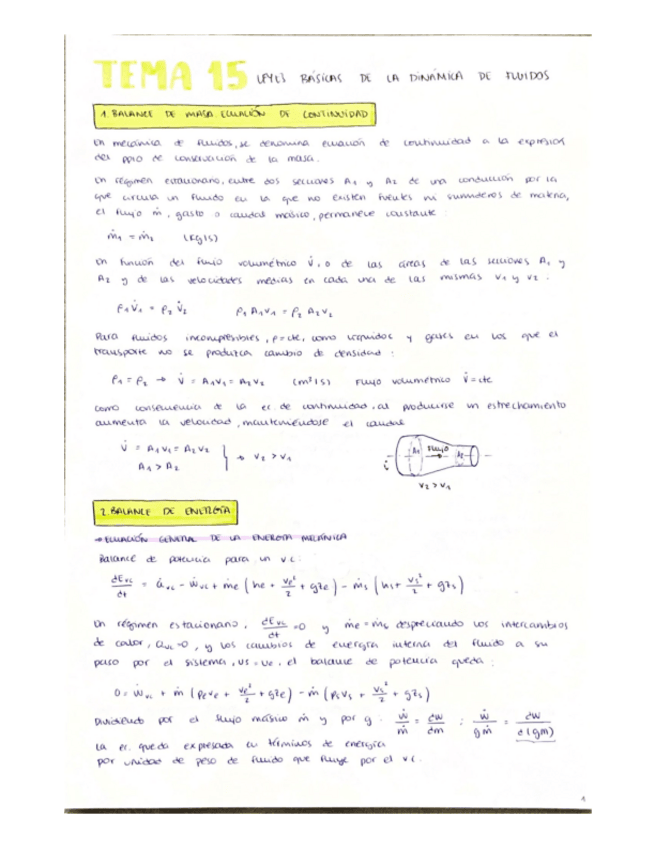 TEMA 15 LEYES BÁSICAS DE LA DINÁMICA DE FLUIDOS
1. BALANCE DE MASA. ECUACIÓN DE CONTINUIDAD
En mecánica de fluidos, se denomina ecuación de continuidad a la expresión
del ppio de conservación de la masa.
En régimen estacionario, entre dos secciones A₁ y A₂ de una conducción por la
que circula un fluido en la que no existen fuentes ni sumideros de materia,
el flujo ṁ, gasto o caudal másico, permanece constante:
ṁ₁ = ṁ₂ (Kg/s)
En función del flujo volumétrico V̇, o de las áreas de las secciones A₁ y
A₂ y de las velocidades medias en cada una de las mismas v₁ y v₂.
ρ₁V̇₁ = ρ₂V̇₂ ρ₁A₁v₁ = ρ₂A₂v₂
Para fluidos incompresibles, ρ=cte, como líquidos y gases en los que el
transporte no se produzca cambio de densidad:
ρ₁ = ρ₂ → V̇ = A₁v₁ = A₂v₂ (m³/s) Flujo volumétrico V̇=cte
Como consecuencia de la ec. de continuidad, al producirse un estrechamiento
aumenta la velocidad, manteniéndose el caudal
V̇ = A₁v₁ = A₂v₂
A₁ > A₂ } → v₂ > v₁
A₁ Flujo A₂
v₂ > v₁
2. BALANCE DE ENERGÍA
→ ECUACIÓN GENERAL DE LA ENERGÍA MECÁNICA
Balance de potencia para un VC:
dEvc/dt = Q̇vc - Ẇvc + ṁe (he + ve²/2 + gze) - ṁs (hs + vs²/2 + gzs)
En régimen estacionario, dEvc/dt = 0 y ṁe = ṁs despreciando los intercambios
de calor, Q̇vc=0, y los cambios de energía interna del fluido a su
paso por el sistema, us = ue, el balance de potencia queda:
0 = Ẇvc + ṁ (Peve + ve²/2 + gze) - ṁ (Psvs + vs²/2 + gzs)
Dividiendo por el flujo másico ṁ y por g: Ẇ/ṁ = dW/dm ; Ẇ/gṁ = dW/d(gm)
La ec. queda expresada en términos de energía
por unidad de peso de fluido que fluye por el VC.
1